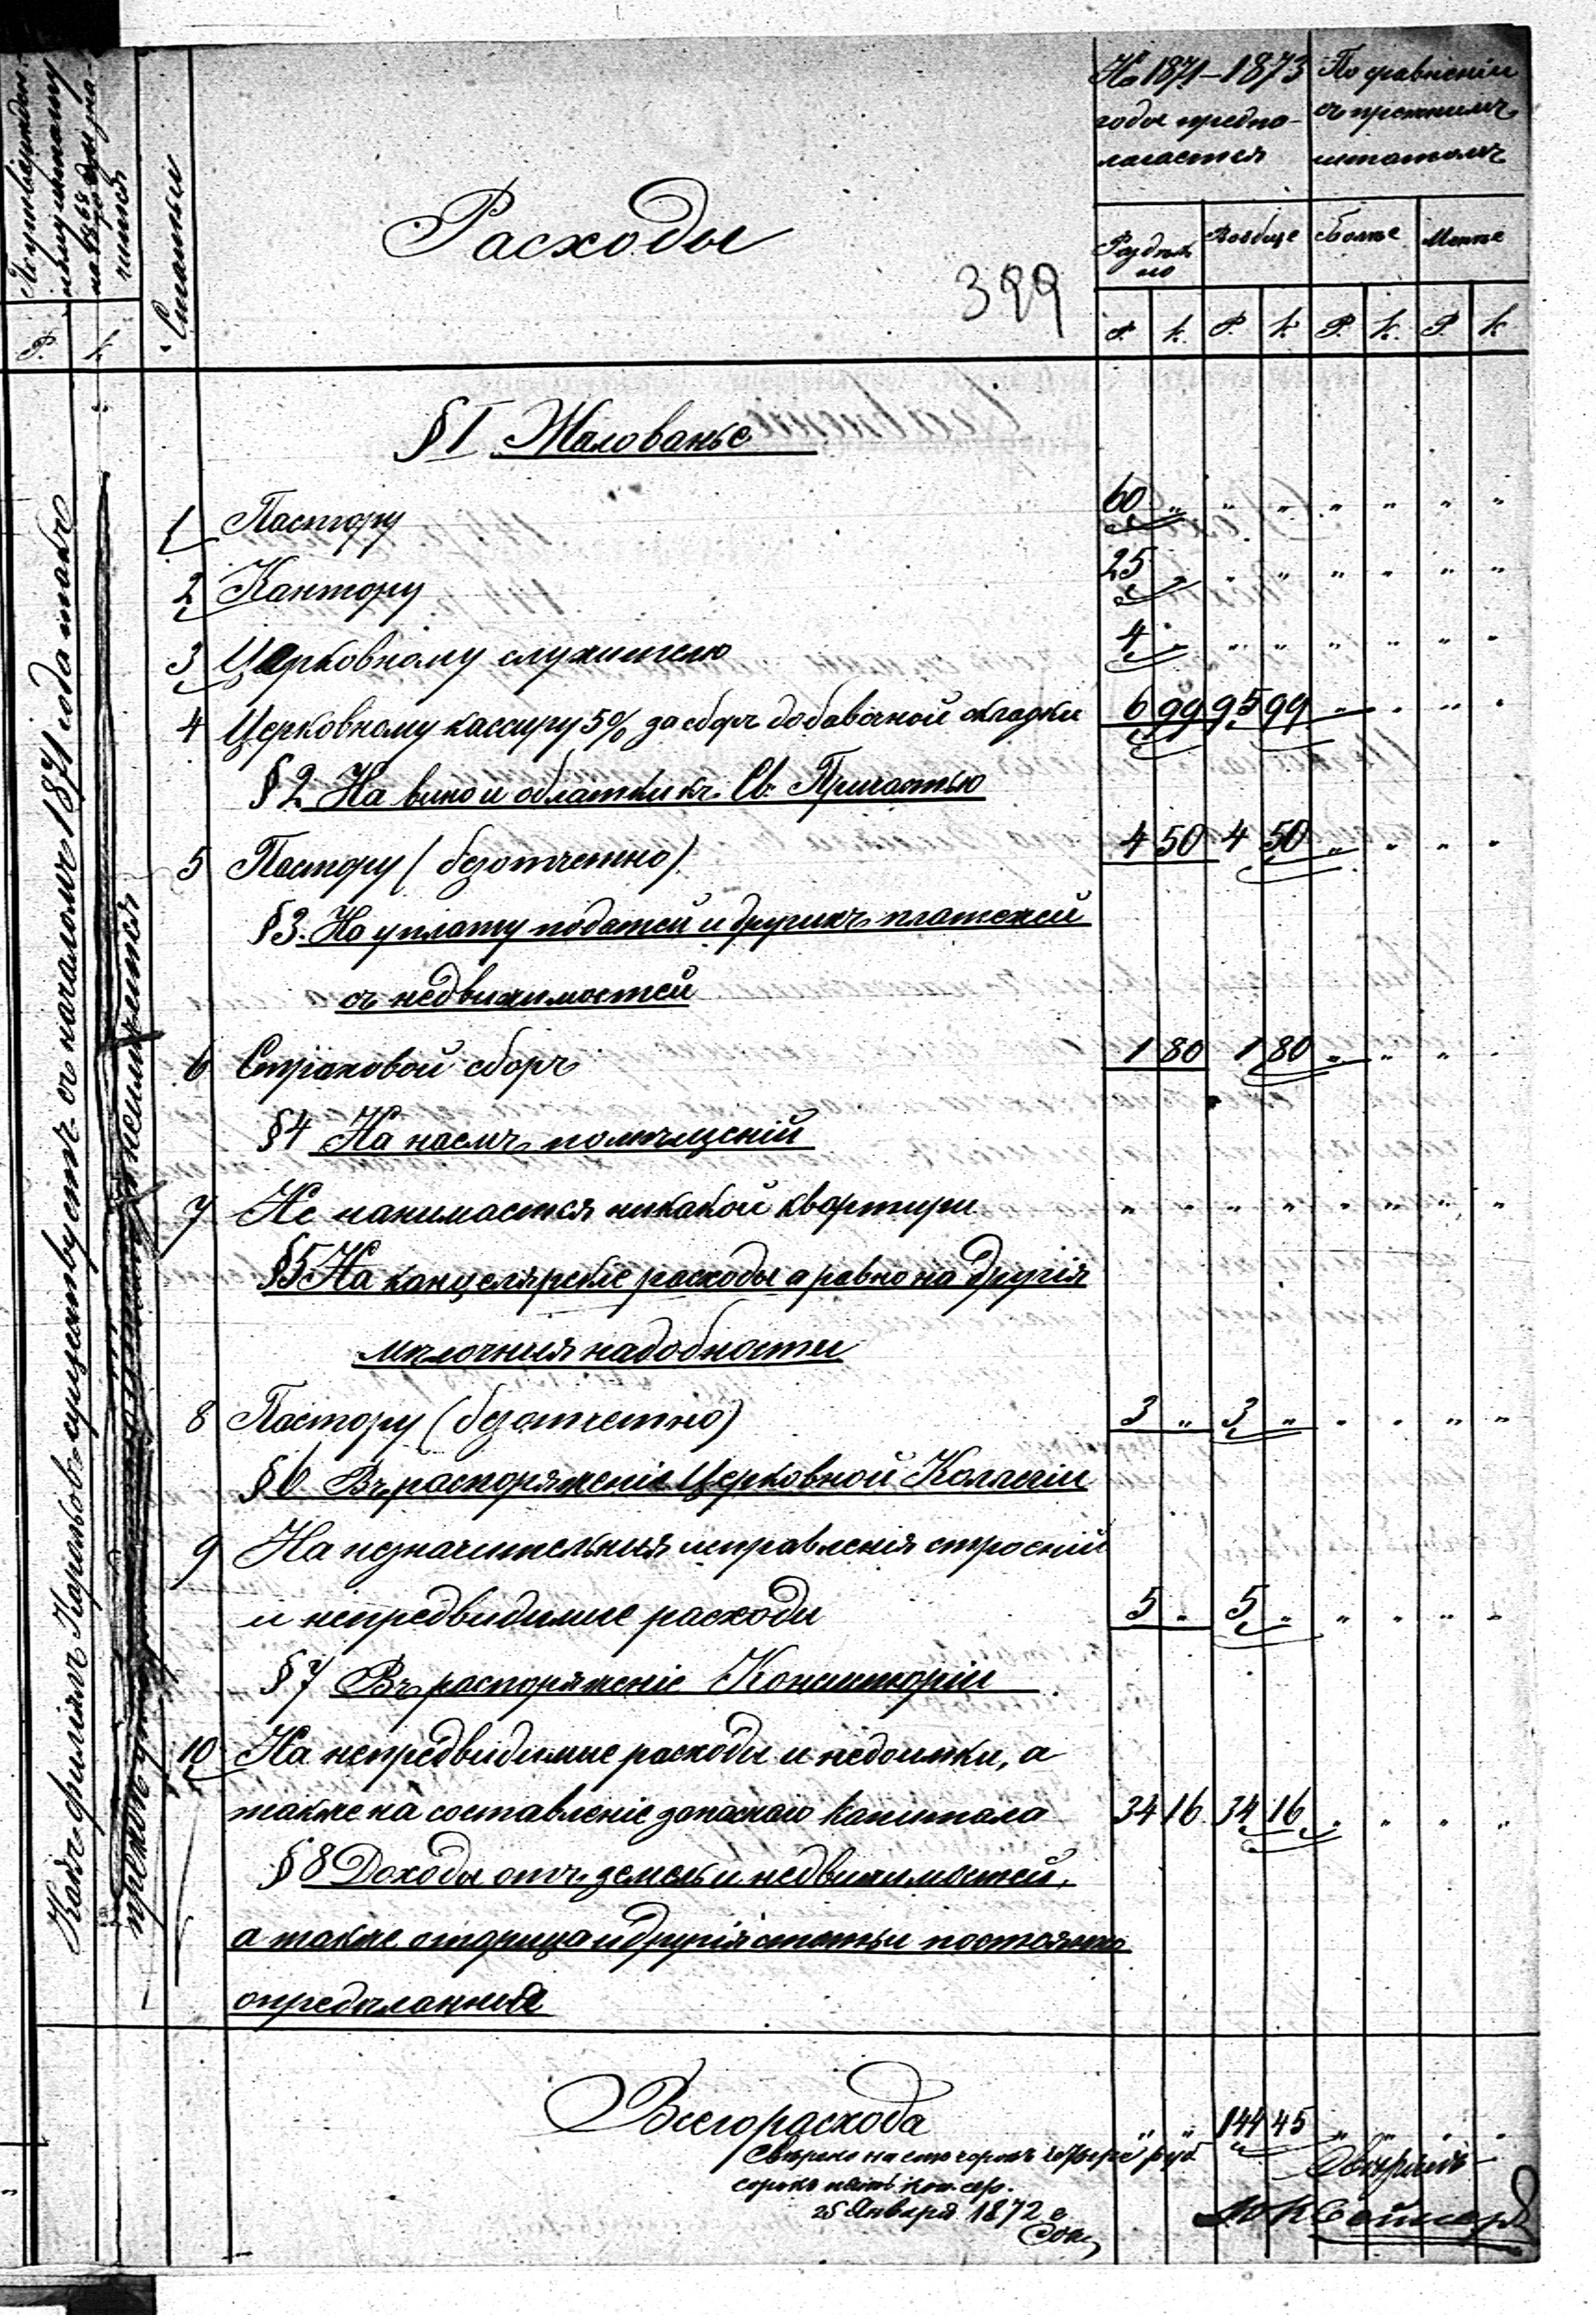 По утвержден-
ному штату
на 1868 годъ зна-
чится
Р. К.
Статьи
Расходы
399
На 1871–1873
годы предпо-
лагается
По сравненіи
съ прежнимъ
штатомъ
Раздѣль
но
Вообще
Болѣе
Менѣе
Р. К. Р. К. Р. К. Р. К.
§ I Жалованье
1 Пастору 60 „ „ „ „ „ „ „
2 Кантору 25 „ „ „ „ „ „ „
3 Церковному служителю 4 „ „ „ „ „ „ „
4 Церковному кассиру 5% за сборъ добавочной складки 6 99 95 99 „ „ „ „
§ 2 На вино и облатки къ Св. Причастью
5 Пастору (безотчетно) 4 50 4 50 „ „ „ „
§ 3. На уплату податей и другихъ платежей
съ недвижимостей
6 Страховой сборъ 1 80 1 80 „ „ „ „
§ 4 На наемъ помѣщеній
7 Не нанимается никакой квартиры „ „ „ „ „ „ „ „
§ 5 На канцелярскіе расходы а равно на другія
мѣлочныя надобности
8 Пастору (безотчетно) 3 „ 3 „ „ „ „ „
§ 6 Въ распоряженіе Церковной Коллегіи
9 На незначительныя исправленія строеній
и непредвидимые расходы 5 „ 5 „ „ „ „ „
§ 7 Въ распоряженіе Консисторіи
10 На непредвидимые расходы и недоимки, а
также на составленіе запаснаго капитала 34 16 34 16 „ „ „ „
§ 8 Доходы отъ земель и недвижимостей,
а также и другія статьи постоянно
опредѣланныя
Всего расхода „ „ 144 45 „ „ „ „
Свѣрено на сто сорокъ четыре руб
сорокъ пять коп. сер.
25 Января 1872 г
Кадъ филіалъ существуетъ съ началомъ 1871 года